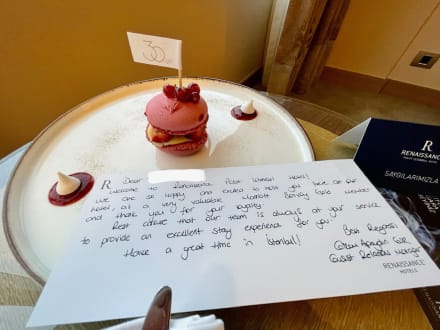 30
R Dear
Welcome to Renaissance Polat Istanbul Hotel!
We are so happy and excited to host you here at our
hotel, as a very valuable Marriott Bonvoy Gold member
and thank you for your loyalty.
Rest assure that our team is always at your service
to provide an excellent stay experience for you.
Have a great time in Istanbul!
Best Regards,
Guest Relations Manager
RENAISSANCE
HOTELS
R
RENAISSANCE
SAYGILARIMIZLA